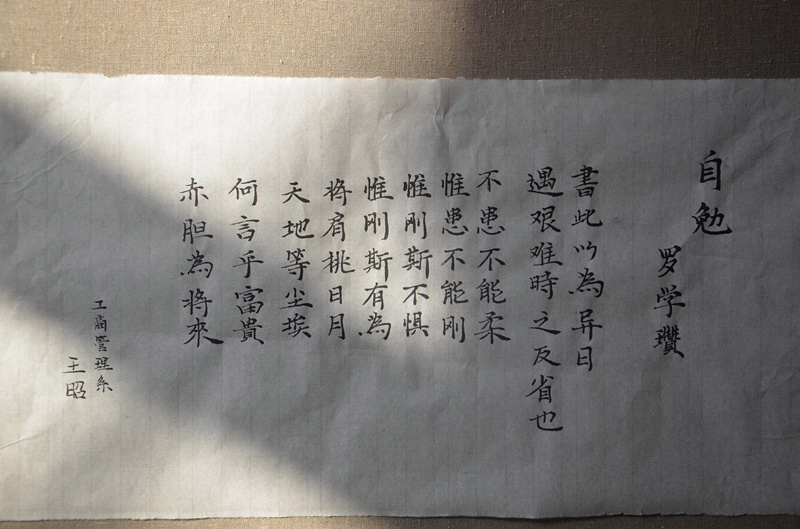 自勉
罗学瓚
書此以為异日
遇艰难時之反省也
不患不能柔
惟患不能刚
惟刚斯不惧
惟刚斯有為
将肩挑日月
天地等尘埃
何言乎富貴
赤胆為将來
工商管理系
王昭